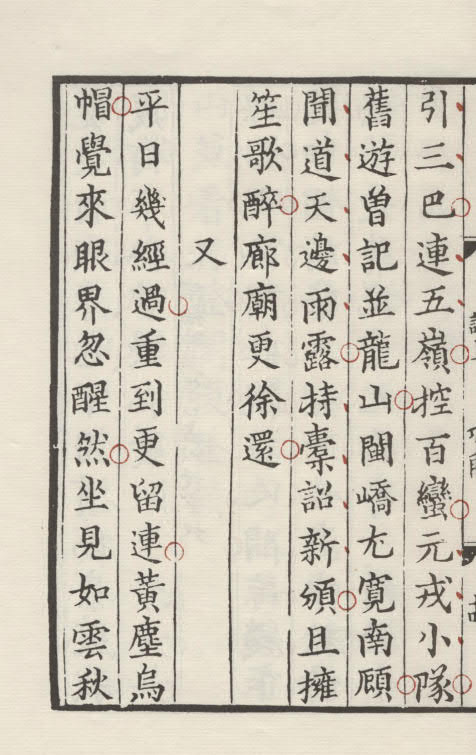 引三巴連五嶺控百蠻元戎小隊
舊遊曾記並龍山閩嶠尤寛南顧
聞道天邊雨露持橐詔新頒且擁
笙歌醉廊廟更徐還
又
平日幾經過重到更留連黃塵烏
帽覺來眼界忽醒然坐見如雲秋